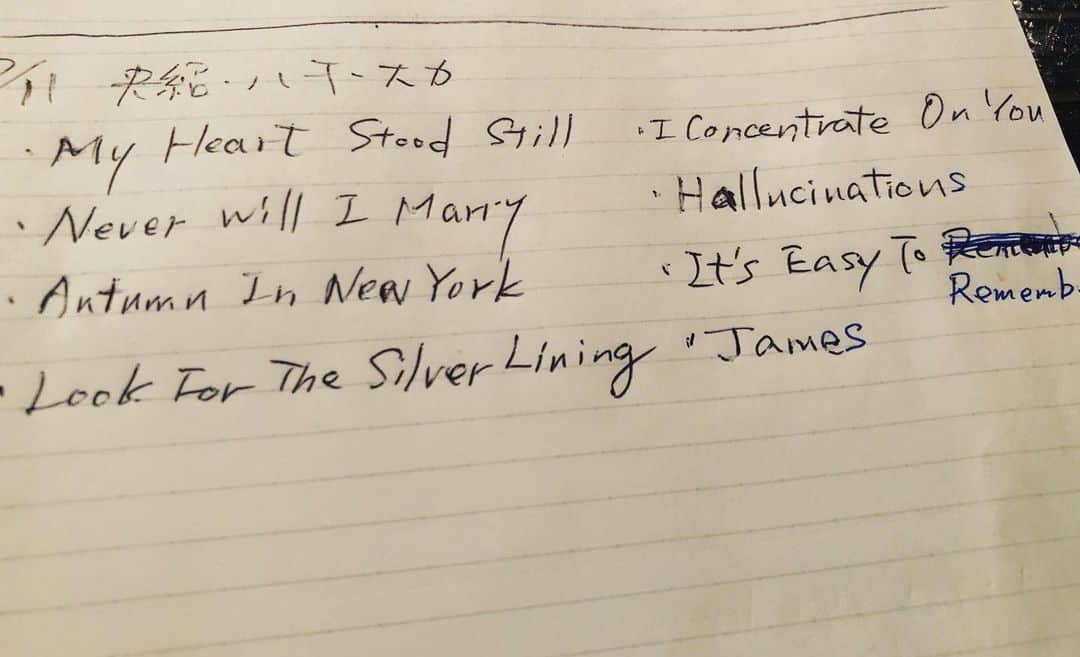 /11 央紹・ハチ・大力
・My Heart Stood Still
・Never Will I Marry
・Autumn In New York
・Look For The Silver Lining
・I Concentrate On You
・Hallucinations
・It's Easy To
Rememb
・James